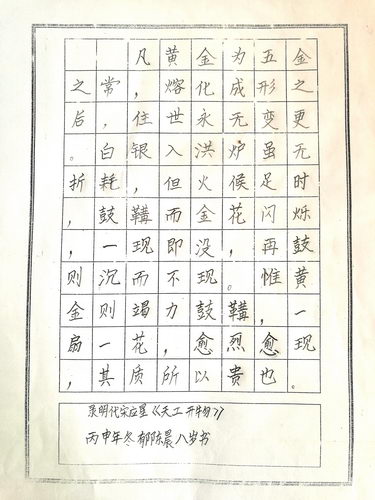 凡黄金为五金
之常，熔化成形之
后，住世永无变更
。白银入洪炉虽无
折耗，但火候足时
，鼓鞴而金花闪烁
，一现即没，再鼓
则沉而不现。惟黄
金则竭力鼓鞴，一
扇一花，愈烈愈现
，其质所以贵也。
录明代宋应星《天工开物》
丙申年冬 郁陈晨八岁书